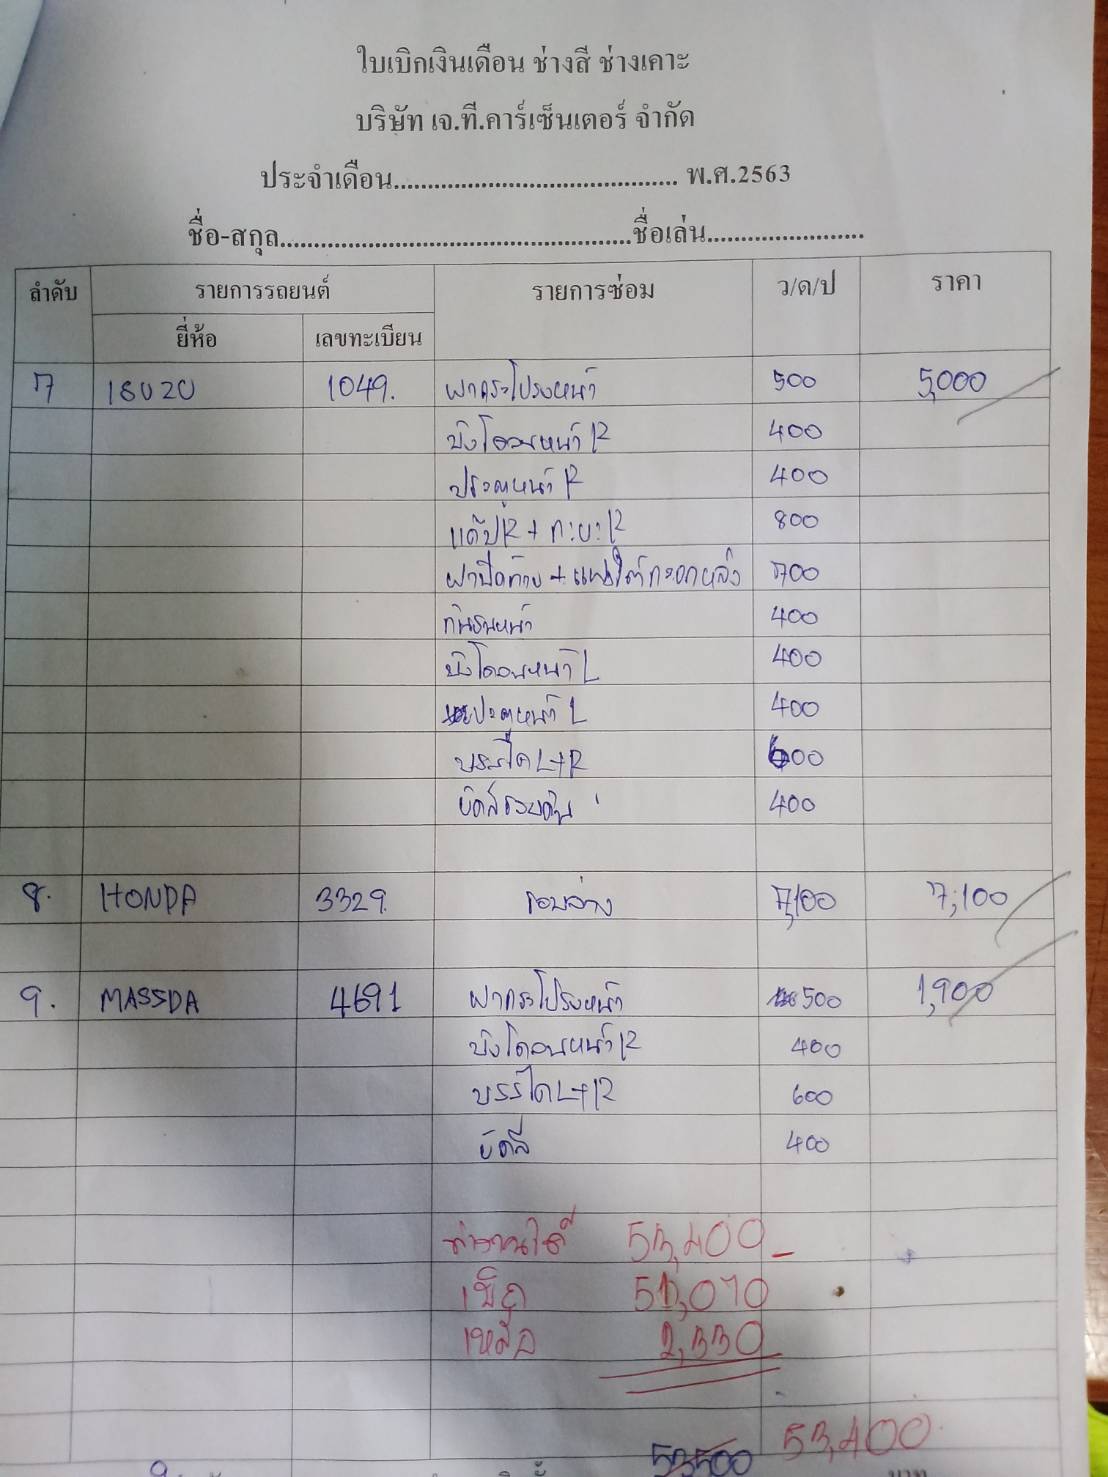 ใบเบิกเงินเดือน ช่างสี ช่างเคาะ
บริษัท เจ.ที.คาร์เซ็นเตอร์ จำกัด
ประจำเดือน.......................................... พ.ศ.2563
ชื่อ-สกุล....................................................ชื่อเล่น.......................
ลำดับ รายการรถยนต์ รายการซ่อม ว/ด/ป ราคา
ยี่ห้อ เลขทะเบียน
7 ISUZU 1049. ฝากระโปรงหน้า 500 5,000
บังโคลนหน้า R 400
ประตูหน้า R 400
แค๊ป R + กะบะ R 800
ฝาปิดท้าย + แผงใต้กระบะหลัง 700
กันชนหน้า 400
บังโคลนหน้า L 400
ประตูหน้า L 400
บรรได L+R 600
ขัดสีรอบคัน 400
8. HONDA 3329. รอบล่าง 7,100 7,100
9. MASSDA 4691 ฝากระโปรงหน้า 500 1,900
บังโคลนหน้า R 400
บรรได L+R 600
ขัดสี 400
ทำงานได้ 53,400
เบิก 51,070
เหลือ 2,330
53,500 53,400
บาท